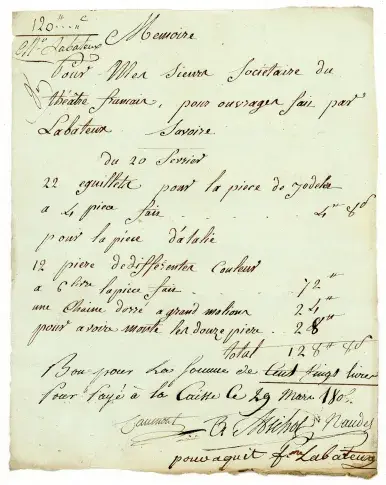 120
Labateux
Memoire
Pour Mes sieurs Societaire du
théâtre francais, pour ouvrages fait par
Labateux Savoire
du 20 fevrier
22 equillette pour la piece de
a 4 piece fait 4 8
pour la piece d'atalie
12 piere dedifferentes Couleur
a 6 lapiece fait 72
une Chaine dorré a grand 24
pour avoire monte les douze piere 28
total 128
Bon pour La somme de Cent vingt livres
Pour Payé à la Caisse Ce 29 Mars
Michot Naudet
pour aquit Labateux